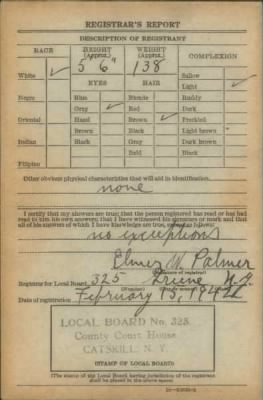 REGISTRAR'S REPORT
DESCRIPTION OF REGISTRANT
RACE HEIGHT (Approx.) WEIGHT (Approx.) COMPLEXION
5' 6" 138
White ✓ Sallow
EYES HAIR Light ✓
Negro Blue Blonde Ruddy
Gray ✓ Red Dark
Oriental Hazel Brown ✓ Freckled
Brown Black Light brown
Indian Black Gray Dark brown
Bald Black
Filipino
Other obvious physical characteristics that will aid in identification
none
I certify that my answers are true; that the person registered has read or has had
read to him his own answers; that I have witnessed his signature or mark and that
all of his answers of which I have knowledge are true, except as follows:
no exceptions
Elmer W. Palmer
(Signature of registrar)
Registrar for Local Board 325 Greene N.Y.
Date of registration February 15, 1942
LOCAL BOARD No. 325
County Court House
CATSKILL, N. Y.
(STAMP OF LOCAL BOARD)
(The stamp of the Local Board having jurisdiction of the registrant
shall be placed in the above space)